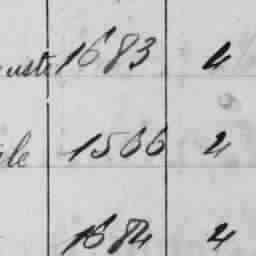 uste 1683 4
ile 1566 4
1684 4